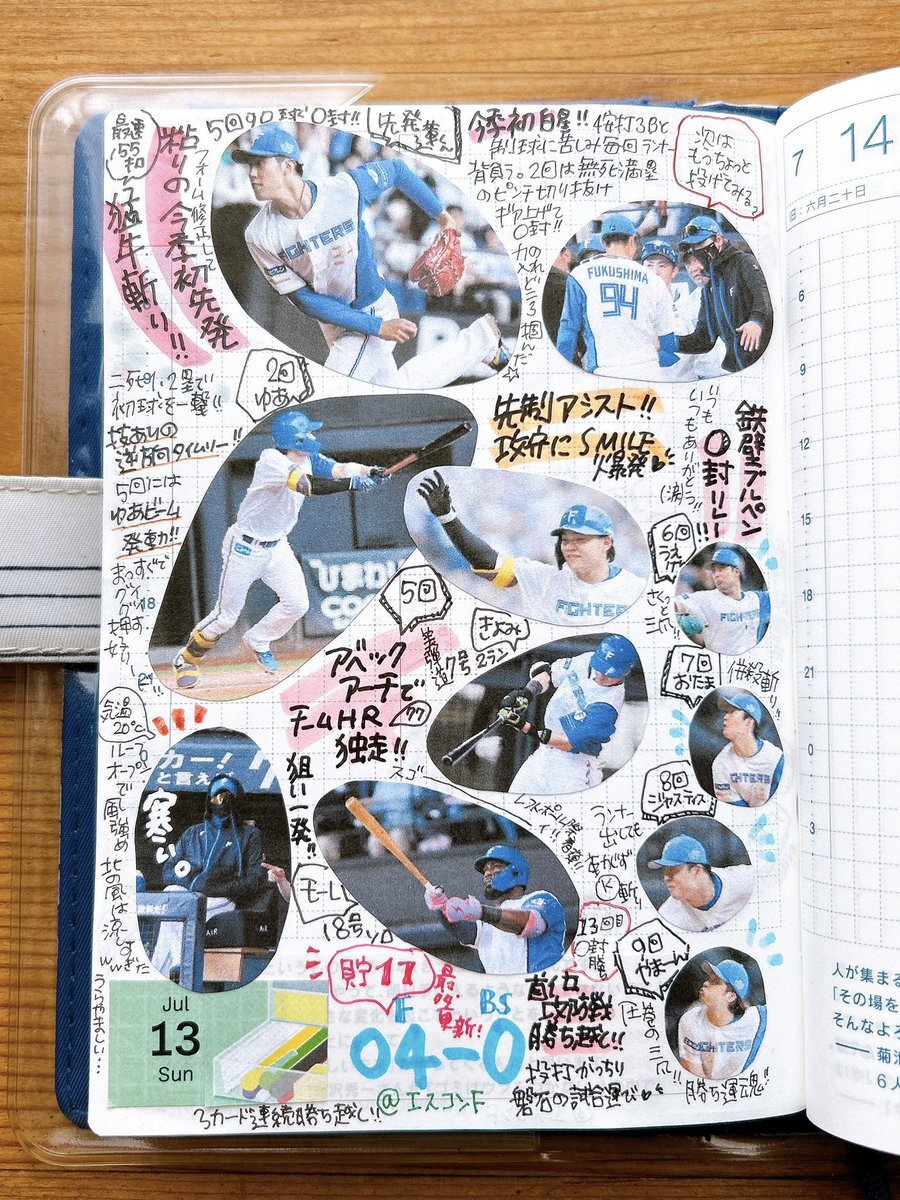 最速
155キロ
粘りの今季初先発
猛牛斬り!!
フォーム修正して
5回90球0封!!
先発
今季初白星!!
4安打3Bと
制球に苦しみ毎回ランナー
背負う。2回は無死満塁
のピンチ切り抜け
ギア上げて
0封!!
力の入れどころ掴んだ☆
次は
もっちょっと
投げてみる?
FIGHTERS
FUKUSHIMA
94
2回
ゆあん
二死1,2塁で
初球を一撃!!
技ありの
逆方向タイムリー!!
5回には
ゆあビーム
発動!!
まっすぐで
グイグイ
押す
先制アシスト!!
攻守にSMILE
爆発
いつも
いつもありがとう!!
(涙)
鉄壁ブルペン
0封リレー!!
ひまわり
F
FIGHTERS
6回
さくっと
三凡!!
5回
きよみや
7号
2ラン
アベック
アーチで
チームHR
77
独走!!
スゴー
7回
おたま
併殺斬り!!
気温
20℃
ルーフ
オープン
で風強め
北の風は
涼しすぎた
ww
うらやましい…
カー!
と言え
寒い。
AIR
AIR
狙い一発!!
モーレ
18号ソロ
レフトポール際
8回
ジャスティス
ランナー
出しても
あわてず
K斬り
13回目
0封勝
9回
やまーん
圧巻の三凡!!
貯17
最多更新!
F
BS
04-0
@エスコンF
首位
攻防戦
勝ち越し!!
投打がっちり
磐石の試合運び
勝ち運魂!!
Jul
13
Sun
3カード連続勝ち越し!!
7
14
旧:六月二十日
6
9
12
15
18
21
0
3
人が集まる
「その場を
そんなよろ
── 菊池
6人